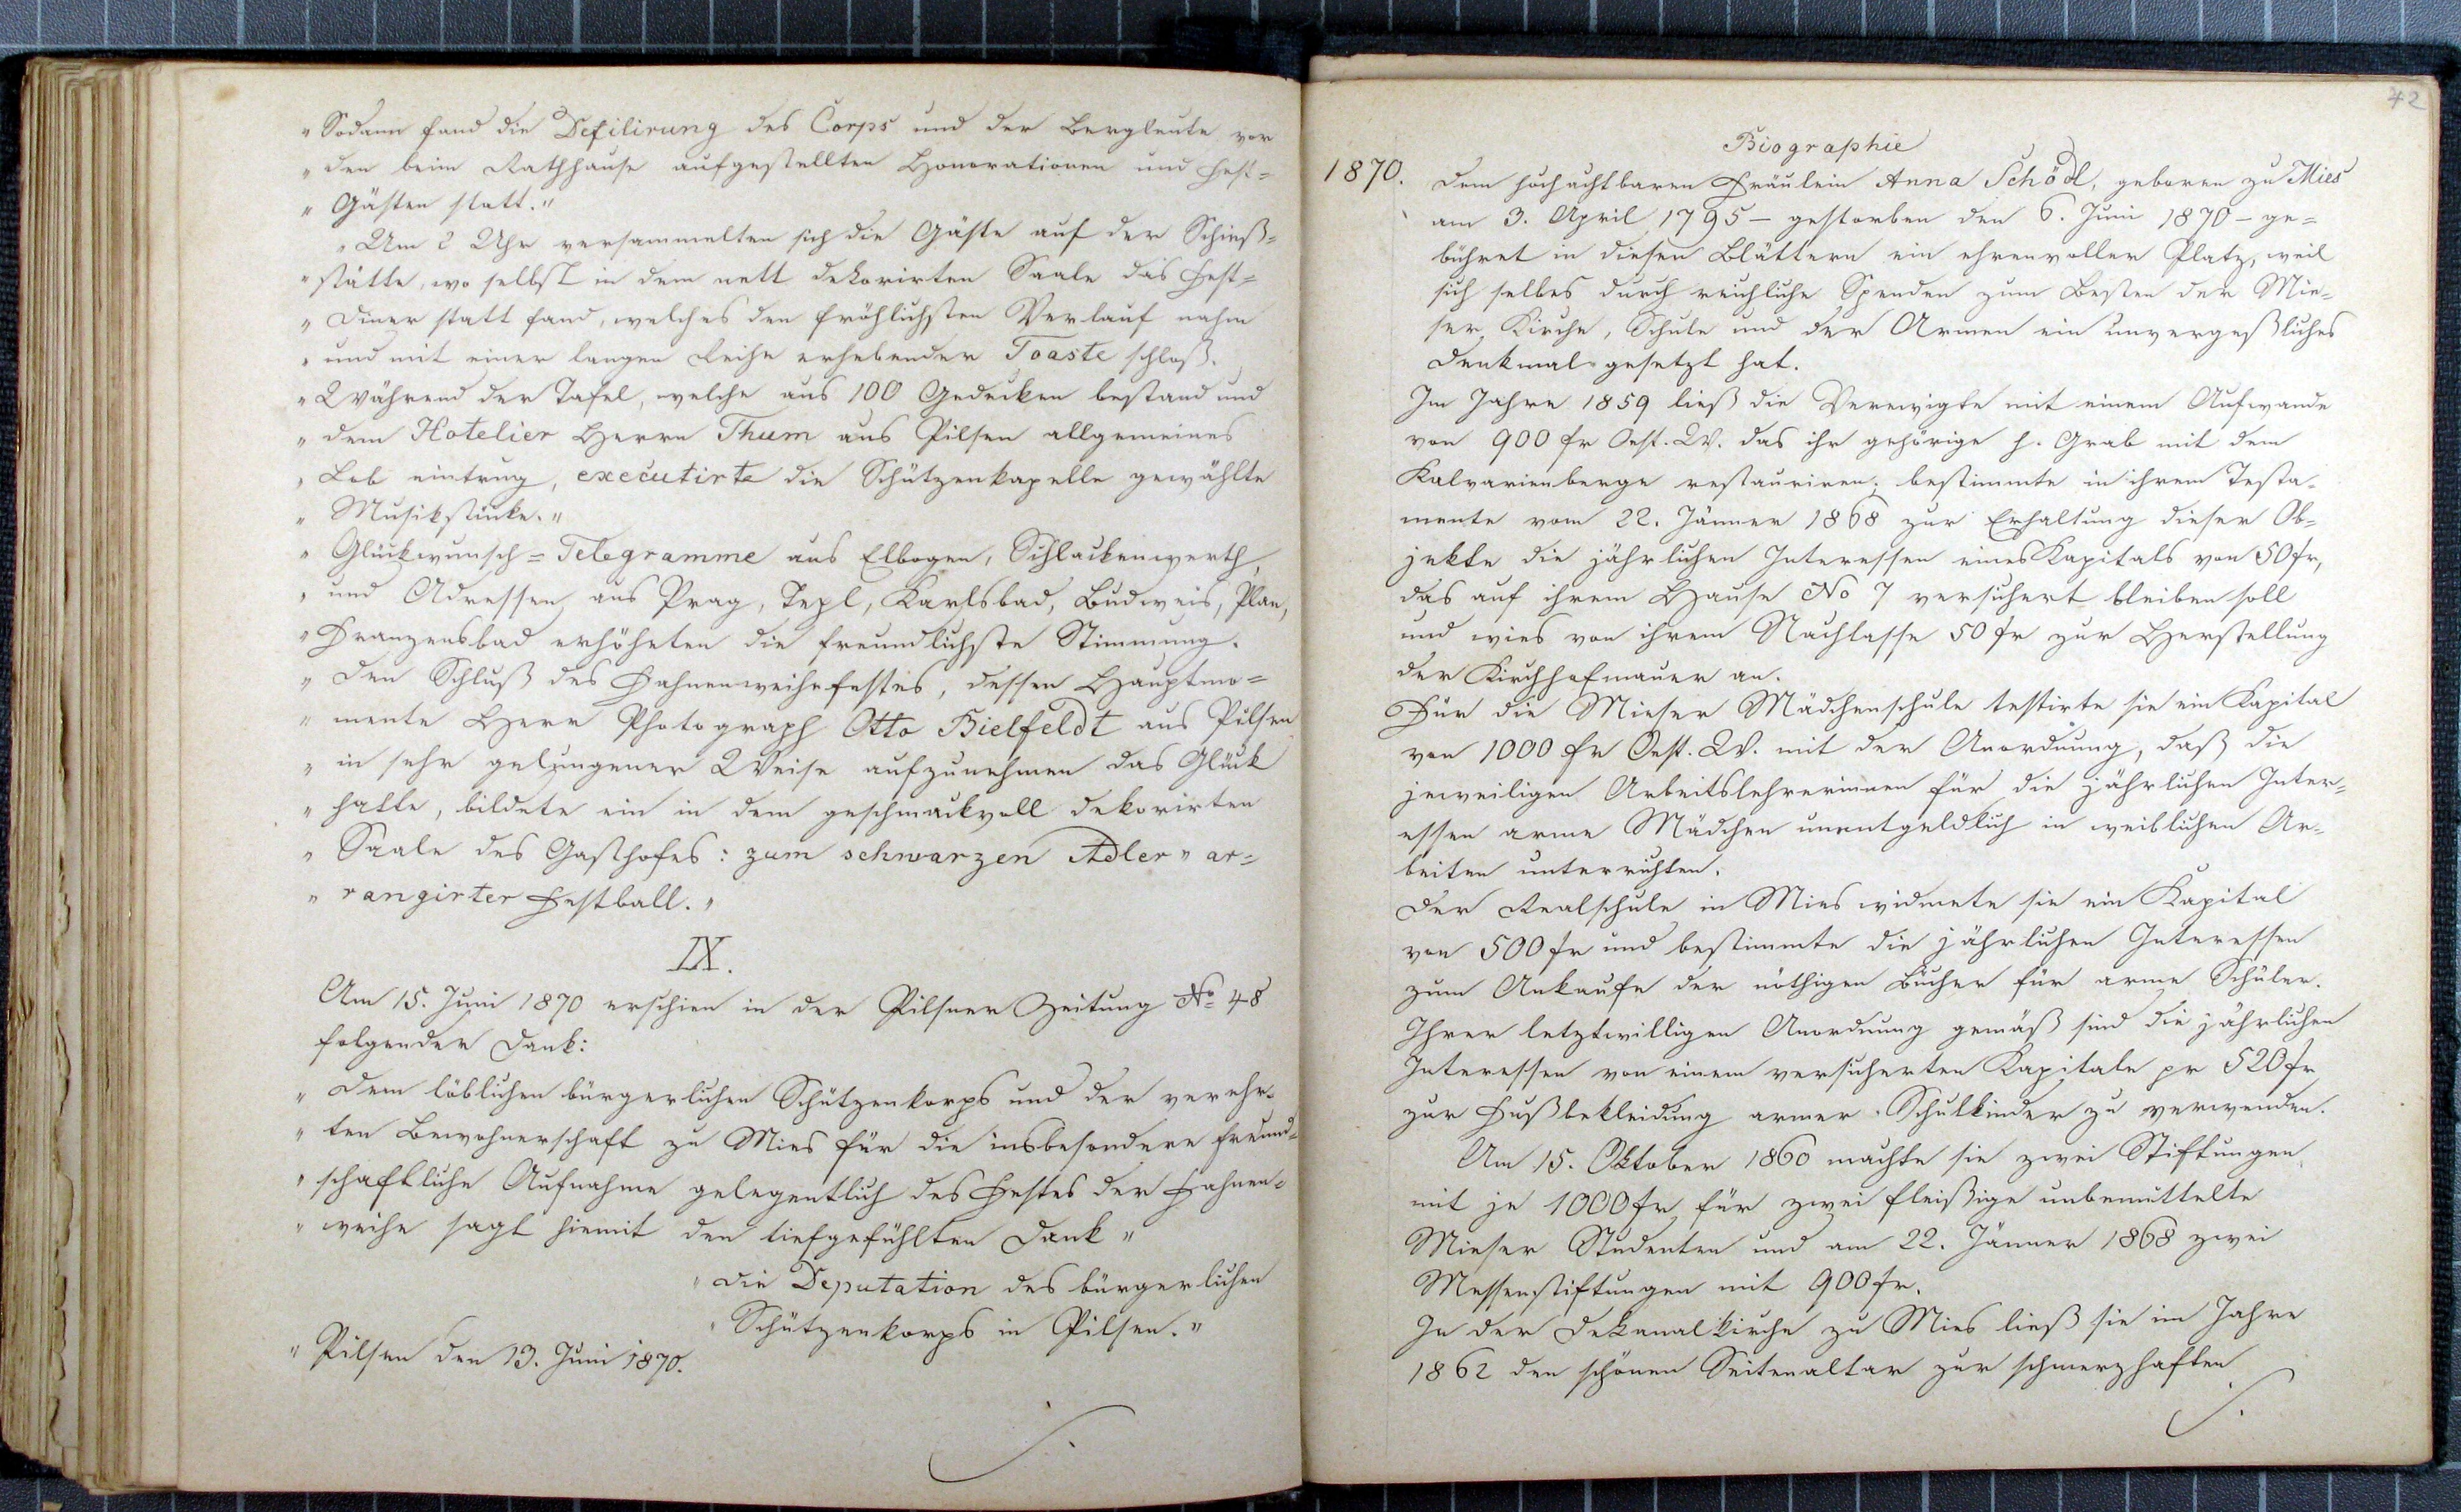 „Sodann fand die Defilirung des Corps und der Bergleute vor
„den beim Rathhause aufgestellten Honorationen und Fest=
„Gästen statt."
„Um 2 Uhr versammelten sich die Gäste auf der Schieß=
„stätte, wo selbst in dem nett dekorirten Saale das Fest=
„Diner statt fand, welches den fröhlichsten Verlauf nahm
„und mit einer langen Reihe erhebender Toaste schloß.
„Während der Tafel, welche aus 100 Gedecken bestand und
„dem Hotelier Herrn Thum aus Pilsen allgemeines
„Lob eintrug, executirte die Schützenkapelle gewählte
„Musikstücke."
„Glückwunsch=Telegramme aus Elbogen, Schlackenwerth,
„und Adressen aus Prag, Tepl, Karlsbad, Budweis, Plan,
„Franzensbad erhöhten die freundlichste Stimmung.
„Den Schluß des Fahnenweihefestes, dessen Hauptmo=
„mente Herr Photograph Otto Bielfeldt aus Pilsen
„in sehr gelungener Weise aufzunehmen das Glück
„hatte, bildete ein in dem geschmackvoll dekorirten
„Saale des Gasthofes: zum schwarzen Adler" ar=
„rangirter Festball."
IX.
Am 15. Juni 1870 erschien in der Pilsner Zeitung No 48
folgender Dank:
„Dem löblichen bürgerlichen Schützenkorps und der verehr=
„ten Bewohnerschaft zu Mies für die insbesondere freund=
„schaftliche Aufnahme gelegentlich des Festes der Fahnen=
„weihe sagt hiemit den tiefgefühlten Dank"
„Die Deputation des bürgerlichen
„Schützenkorps in Pilsen."
„Pilsen den 13. Juni 1870.
42
Biographie
1870. Dem hochachtbaren Fräulein Anna Schödl, geboren zu Mies
am 3. April 1795 – gestorben den 6. Juni 1870 – ge=
bühret in diesen Blättern ein ehrenvoller Platz, weil
sich selbes durch reichliche Spenden zum Besten der Mie=
ser Kirche, Schule und der Armen ein unvergeßliches
Denkmal gesetzt hat.
Im Jahre 1859 ließ die Verewigte mit einem Aufwande
von 900 fr Oest. W. das ihr gehörige h. Grab mit dem
Kalvarienberge restauriren; bestimmte in ihrem Testa=
mente vom 22. Jänner 1868 zur Erhaltung dieser Ob=
jekte die jährlichen Interessen eines Kapitals von 50 fr,
das auf ihrem Hause No 7 versichert bleiben soll
und wies von ihrem Nachlasse 50 fr zur Herstellung
der Kirchhofmauer an.
Für die Mieser Mädchenschule testirte sie ein Kapital
von 1000 fr Oest. W. mit der Anordnung, daß die
jeweiligen Arbeitslehrerinnen für die jährlichen Inter=
essen arme Mädchen unentgeldlich in weiblichen Ar=
beiten unterrichten.
Der Realschule in Mies widmete sie ein Kapital
von 500 fr und bestimmte die jährlichen Interessen
zum Ankaufe der nöthigen Bücher für arme Schüler.
Ihrer letztwilligen Anordnung gemäß sind die jährlichen
Interessen von einem versicherten Kapitale pr 520 fr
zur Fußbekleidung armer Schulkinder zu verwenden.
Am 15. Oktober 1860 machte sie zwei Stiftungen
mit je 1000 fr für zwei fleißige unbemittelte
Mieser Studenten und am 22. Jänner 1868 zwei
Messenstiftungen mit 900 fr.
In der Dekanalkirche zu Mies ließ sie im Jahre
1862 den schönen Seitenaltar zur schmerzhaften